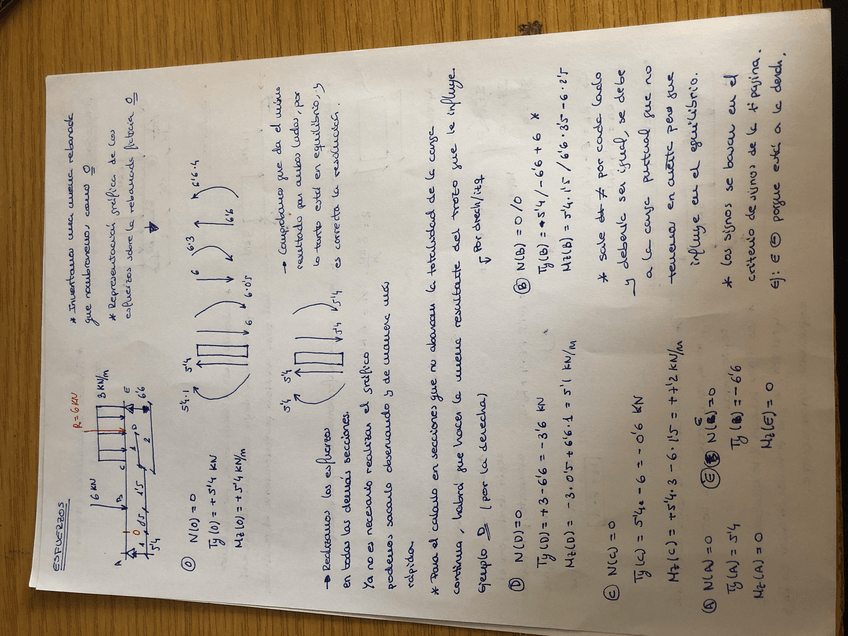 ESFUERZOS
6 KN
R=6KN
3 KN/m
A
O
B
C
D
E
1
0'5
1'5
1
2
5'4
6'6
* Inventamos una nueva rebanada
que nombraremos como O
* Representación gráfica de los
esfuerzos sobre la rebanada futura O
O N(O) = 0
Ty(O) = +5'4 KN
Mz(O) = +5'4 KN/m
5'4·1
5'4
6
6·0'5
6
6·3
6'6·4
6'6
→ Realizamos los esfuerzos
en todas las demás secciones.
5'4
5'4
5'4
5'4
→ Comprobamos que da el mismo
resultado por ambos lados, por
lo tanto está en equilibrio, y
es correcta la resolución.
Ya no es necesario realizar el gráfico
podemos sacarlo observando y de manera más
rápida.
* Para el cálculo en secciones que no abarcan la totalidad de la carga
continua, habrá que hacer la nueva resultante del trozo que le influye.
Ejemplo D (por la derecha)
Por drech/izq
D N(D)=0
Ty(D) = +3-6'6 = -3'6 KN
Mz(D) = -3·0'5+6'6·1 = 5'1 KN/m
B N(B) = 0/0
Ty(B) = 5'4/-6'6+6 *
Mz(B) = 5'4·1'5/6'6·3'5-6·2'5
C N(C) = 0
Ty(C) = 5'4-6 = -0'6 KN
Mz(C) = +5'4·3-6·1'5 = +7'2 KN/m
* sale de ≠ por cada lado
y debería ser igual, se debe
a la carga puntual que no
tenemos en cuenta pero que
influye en el equilibrio.
A N(A)=0
Ty(A) = 5'4
Mz(A) = 0
E N(E)=0
Ty(B) = -6'6
Mz(E) = 0
* Los signos se basan en el
criterio de signos de la 1ª página.
Ej: E porque está a la derch.